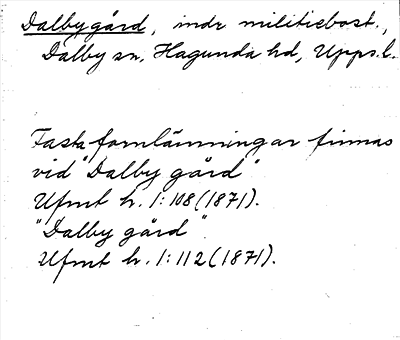 Dalbygård, indr militiebost.,
Dalby sn, Hagunda hd, Upps.l.
Fasta fornlämningar finnas
vid "Dalby gård"
Ufmt h. 1:108 (1871).
"Dalby gård".
Ufmt h. 1:112 (1871).